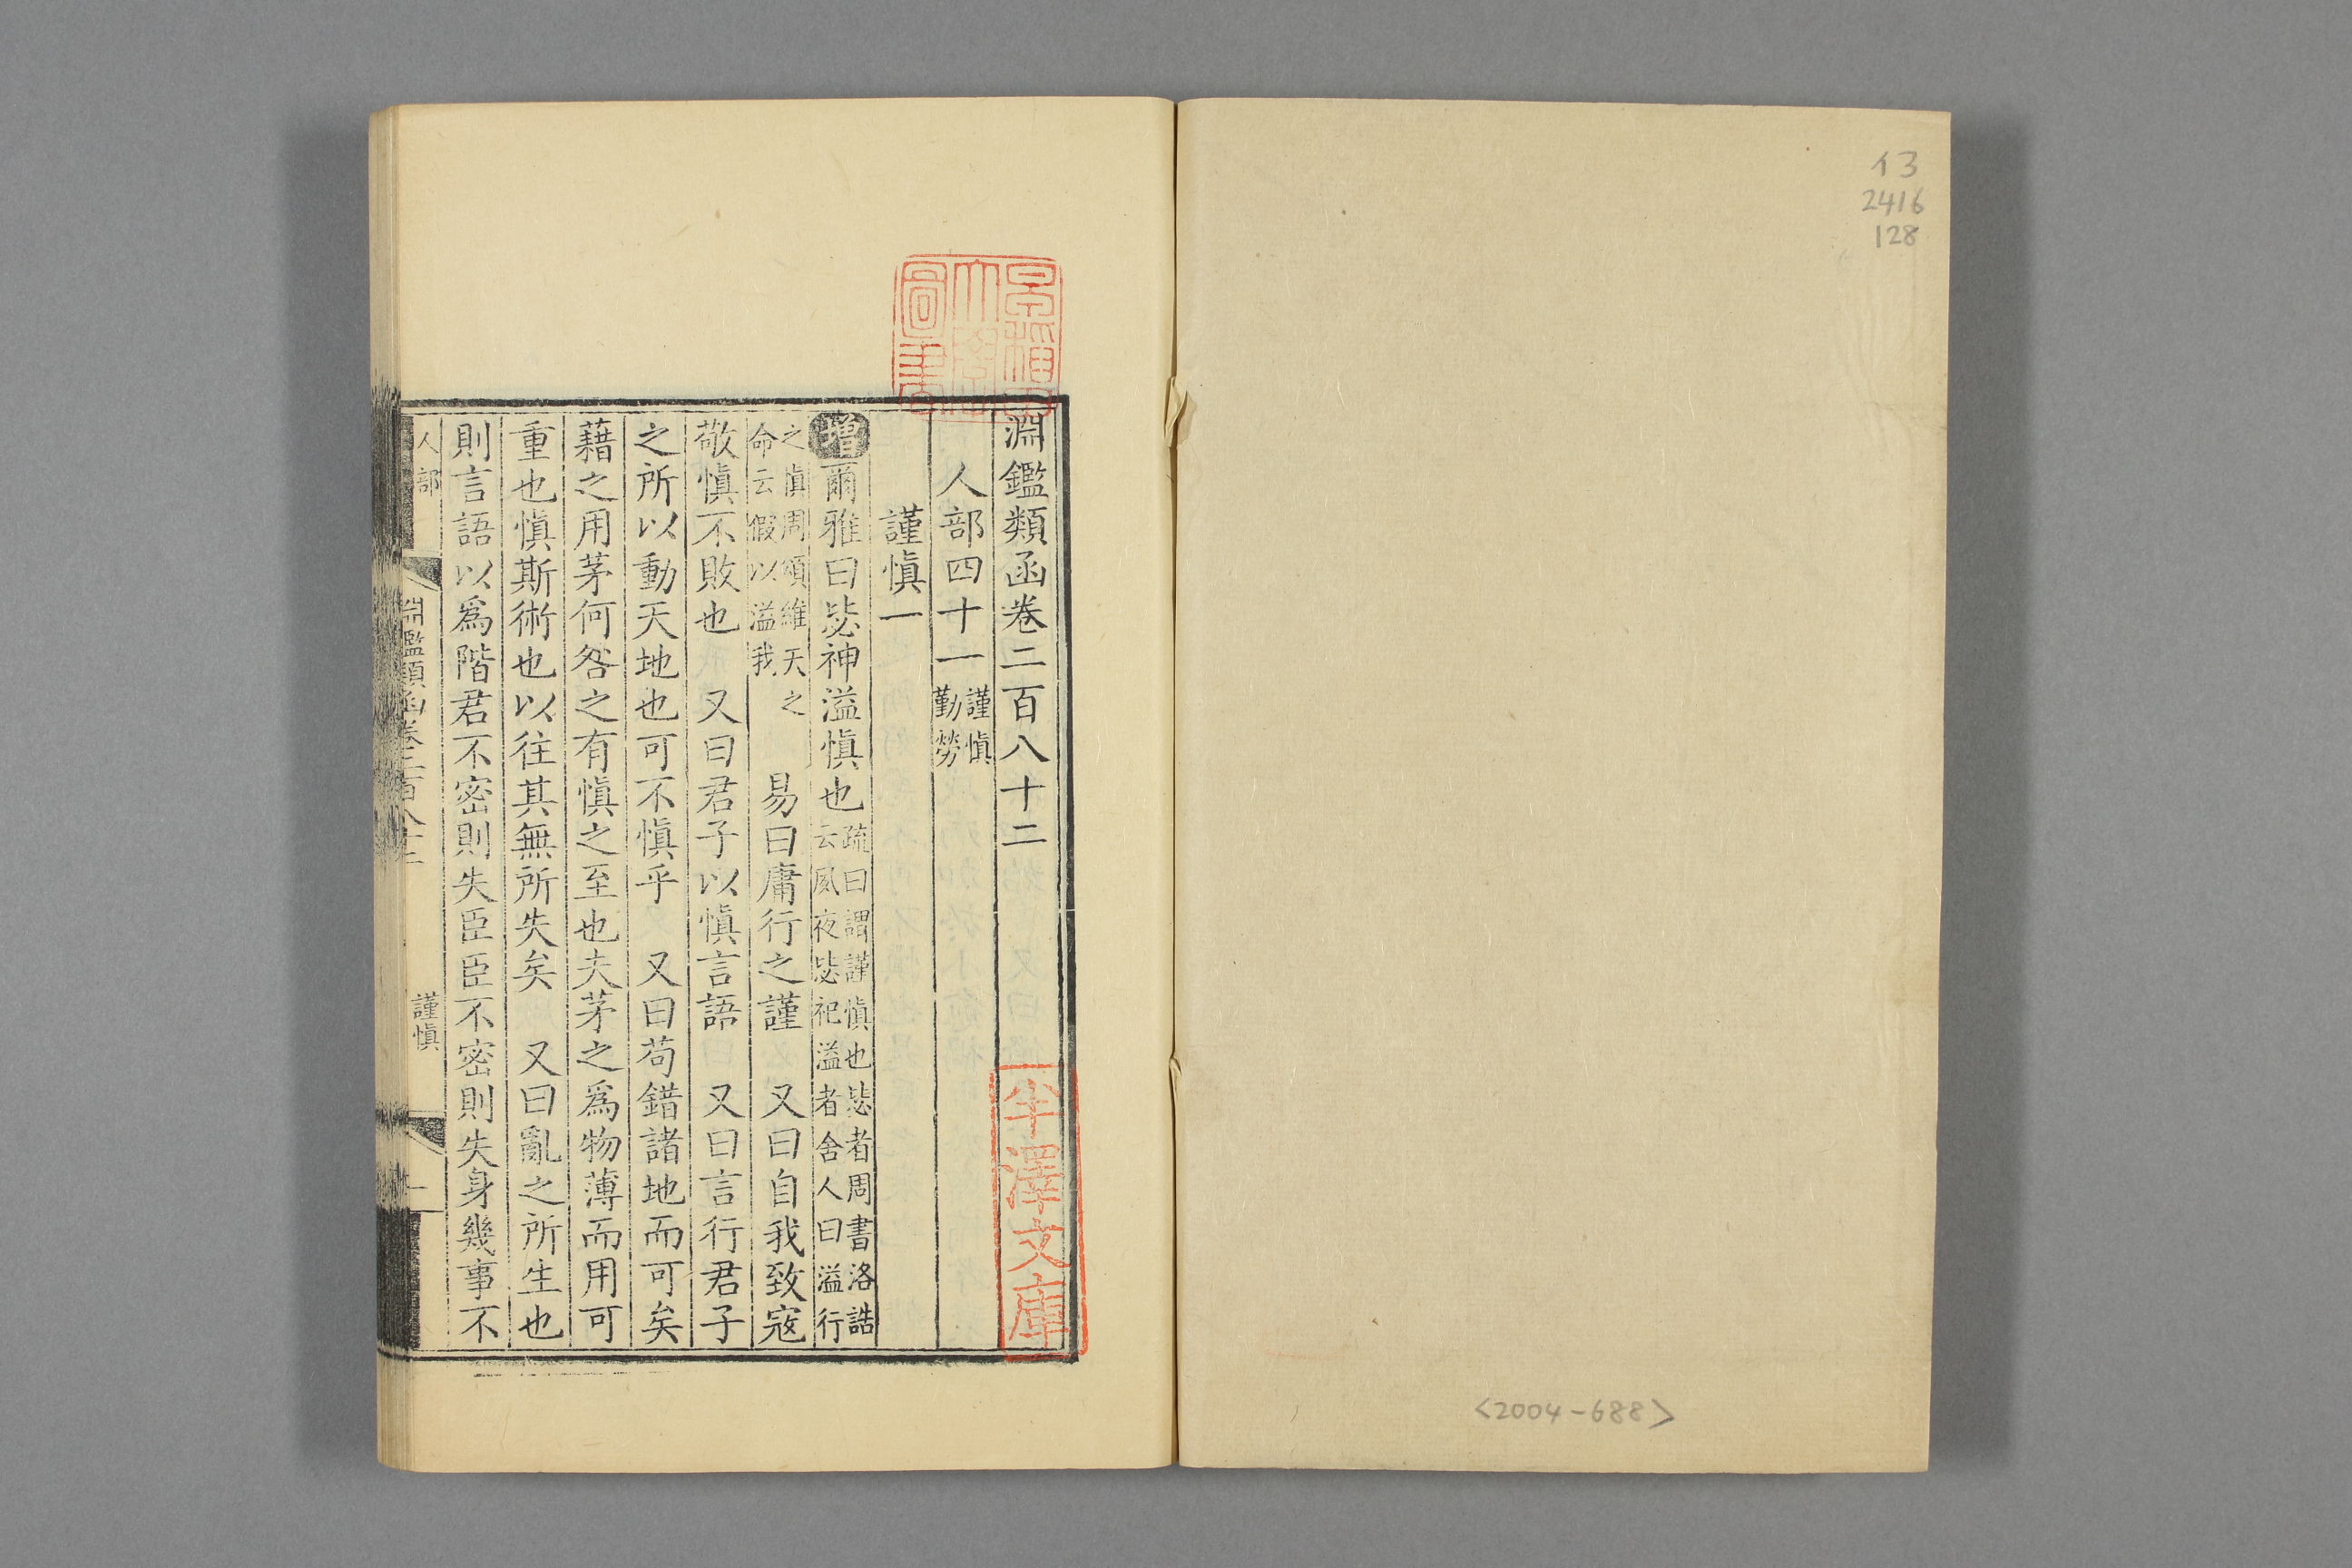 イ3
2416
128
<2004-688>
早稲田
大學
圖書
半澤文庫
淵鑑類函卷二百八十二
人部四十一 謹愼
勤勞
謹愼一
增爾雅曰毖神溢愼也 疏曰謂謹愼也毖者周書洛誥
云夙夜毖祀溢者舍人曰溢行
之愼周頌維天之
命云假以溢我
易曰庸行之謹 又曰自我致寇
敬愼不敗也 又曰君子以愼言語 又曰言行君子
之所以動天地也可不愼乎 又曰苟錯諸地而可矣
藉之用茅何咎之有愼之至也夫茅之爲物薄而用可
重也愼斯術也以往其無所失矣 又曰亂之所生也
則言語以爲階君不密則失臣臣不密則失身幾事不
人部
淵鑑類函卷二百八十二
謹愼
一